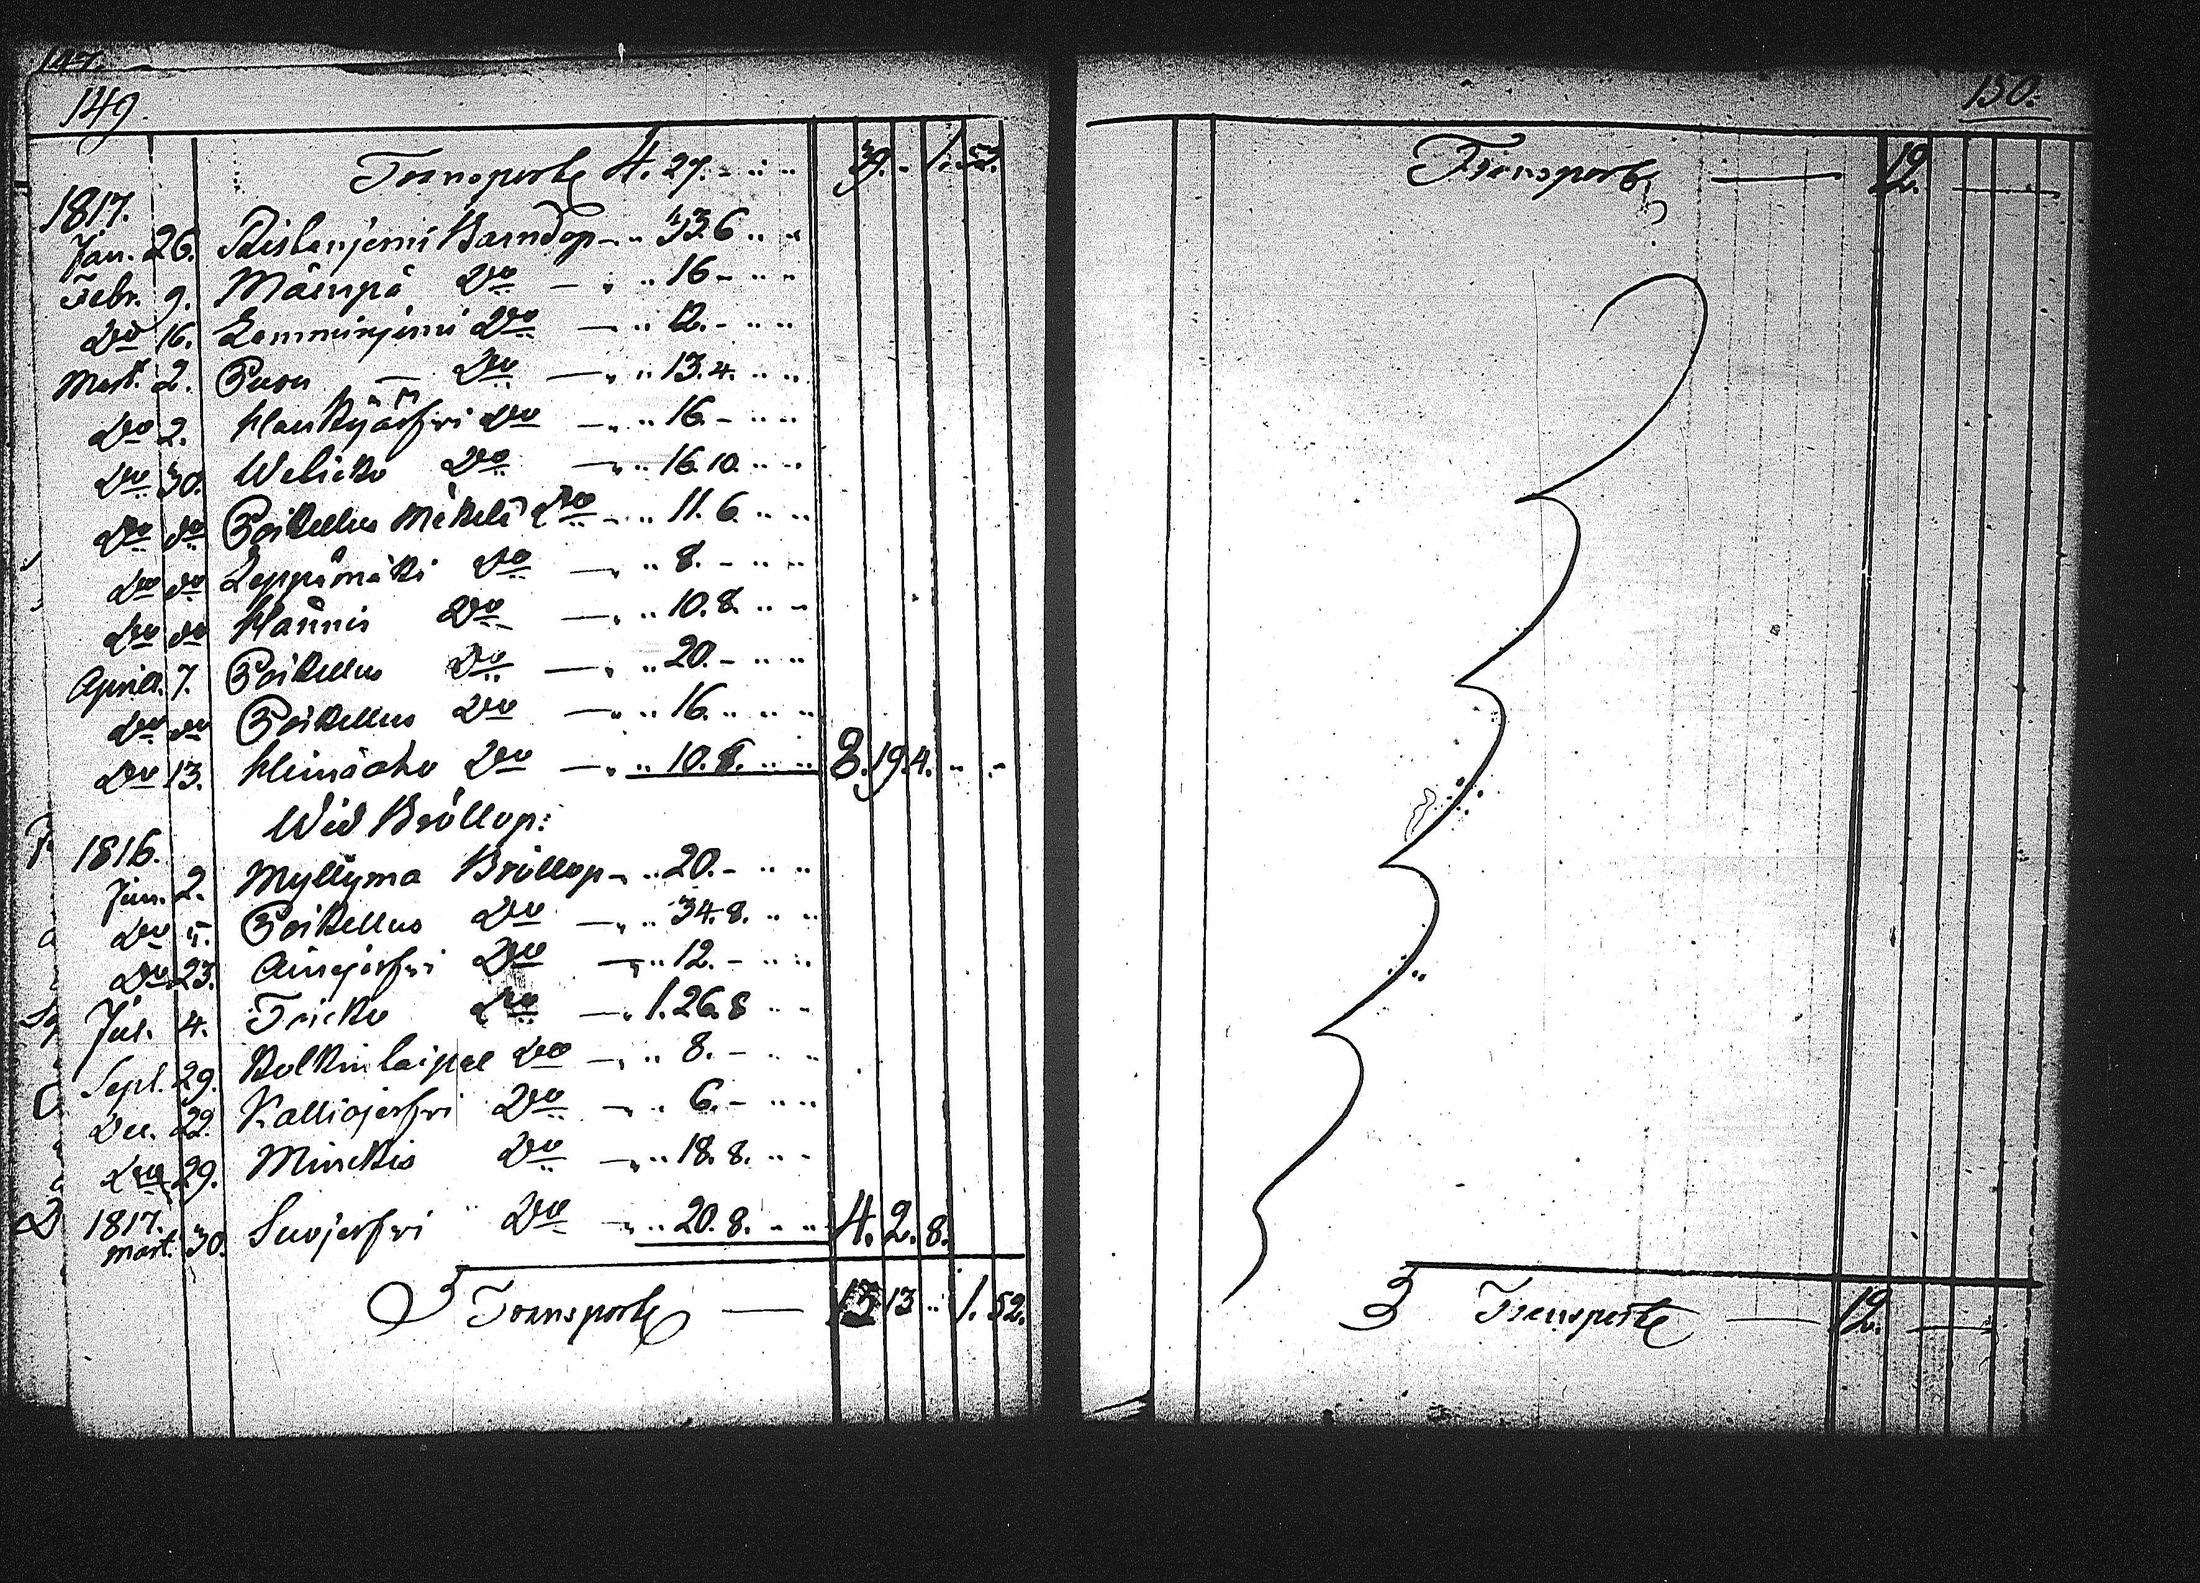 147.
149.
Transport 4. 27. - .. .. 39. - 1. 52.
1817.
Jan. 26. Ristenjemi Barndop - .. 33.6 .. ..
Febr. 9. Mäenpä Do — .. 16 - .. ..
Do 16. Lamminjemi Do — .. 12. - .. ..
Mart. 2. Puru — Do — .. 13. 4. .. ..
Do 2. Haukijärfvi Do — .. 16 - .. ..
Do 30. Welicko Do — .. 16. 10. .. ..
Do do Poikellus Mäkelä Do - .. 11. 6. .. ..
Do do Leppämäki Do — .. 8. - .. ..
Do do Hannis Do — .. 10. 8. .. ..
April. 7. Poikellus Do — .. 20. - .. ..
Do do Poikellus Do — .. 16. .. .. ..
Do 13. Heinäaho Do — .. 10. 8. .. .. 8. 19. 4. - -
Wid Bröllop:
1816.
Jan. 2. Myllymä Bröllop - .. 20. - .. ..
Do 5. Poikellus Do — .. 34. 8. .. ..
Do 23. Ainejerfvi Do — .. 12. - .. ..
Jul. 4. Fricko Do — 1. 26. 8 .. ..
Sept. 29. Kolkinlaipale Do — .. 8. - .. ..
Dec. 22. Kalliojerfvi Do — .. 6. - .. ..
Do 29. Minckis Do — .. 18. 8. .. ..
1817.
Mart. 30. Suojerfvi Do — .. 20. 8. .. .. 4. 2. 8.
Transport — 13 .. 1. 52.
150.
Transport — 12. —
Transport — 12. —